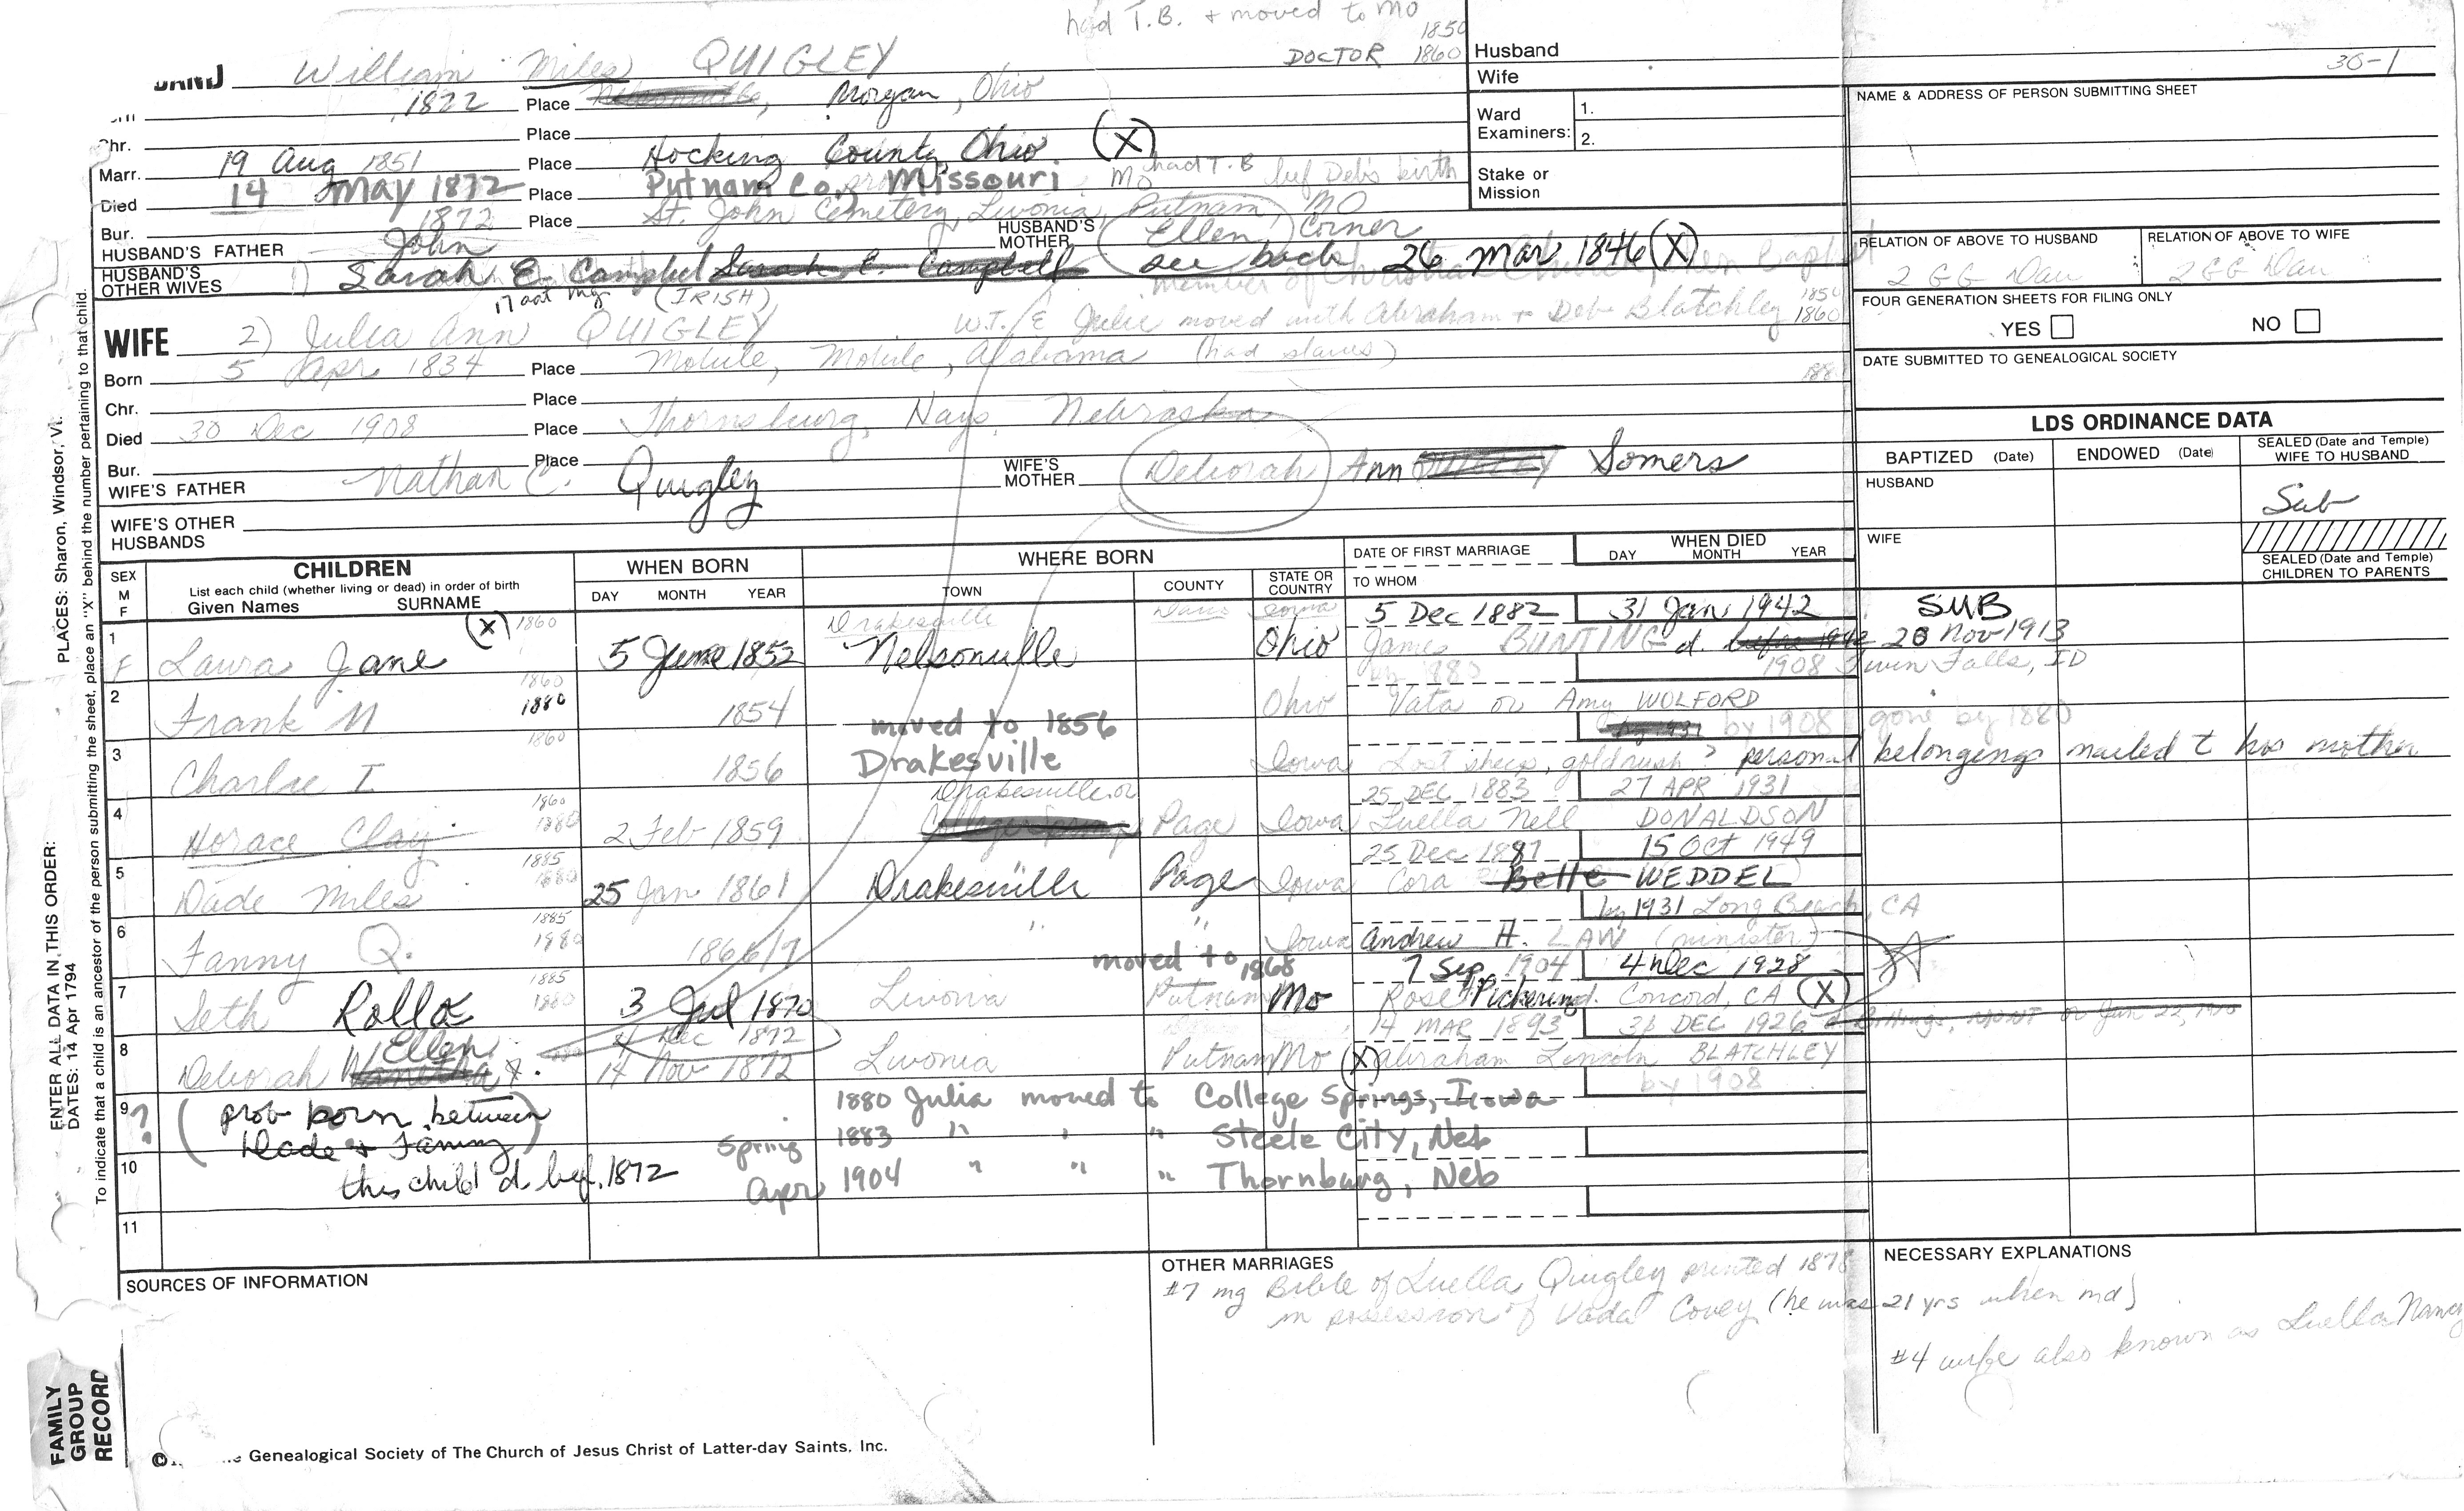 had T.B. + moved to MO
1850
DOCTOR 1860
Husband
30-1
William Miles QUIGLEY
Wife
1822 Place Morgan, Ohio
NAME & ADDRESS OF PERSON SUBMITTING SHEET
Ward Examiners: 1.
2.
Chr. Place
Marr. 19 Aug 1851 Place Hocking County, Ohio (X)
Died 14 May 1872 Place Putnam Co, Missouri MO had T.B bef Deb's birth
Stake or Mission
Bur. 1872 Place St. John Cemetery, Livonia, Putnam, MO
HUSBAND'S FATHER John HUSBAND'S MOTHER Ellen Corner
HUSBAND'S OTHER WIVES 1) Sarah E. Campbel Sarah E. Campbell see back 26 Mar 1846 (X)
member of Christian Baptist
17 at mg (IRISH)
RELATION OF ABOVE TO HUSBAND
2 GG Dau
RELATION OF ABOVE TO WIFE
2 GG Dau
FOUR GENERATION SHEETS FOR FILING ONLY
YES NO
DATE SUBMITTED TO GENEALOGICAL SOCIETY
WIFE 2) Julia Ann QUIGLEY W.T. E Julie moved with Abraham + Deb Blatchley 1850 1860
Born 5 Apr 1834 Place Mobile, Mobile, Alabama (had slaves)
188
Chr. Place
Died 30 Dec 1908 Place Thornsburg, Hays, Nebraska
Bur. Place
WIFE'S FATHER Nathan C. Quigley WIFE'S MOTHER Deborah Ann QUIGLEY Somers
WIFE'S OTHER HUSBANDS
LDS ORDINANCE DATA
BAPTIZED (Date) ENDOWED (Date) SEALED (Date and Temple) WIFE TO HUSBAND
HUSBAND Sub
WIFE
SEALED (Date and Temple) CHILDREN TO PARENTS
SEX M F
CHILDREN
List each child (whether living or dead) in order of birth
Given Names SURNAME
WHEN BORN
DAY MONTH YEAR
WHERE BORN
TOWN COUNTY STATE OR COUNTRY
DATE OF FIRST MARRIAGE
TO WHOM
WHEN DIED
DAY MONTH YEAR
(X) 1860 Drakesville Davis Iowa 5 Dec 1882 31 Jan 1942 SUB
1 F Laura Jane 5 June 1852 Nelsonville Ohio James BUNTING d. before 1942 20 Nov 1913
1860 by 1880 1908 Twin Falls, ID
2 Frank M 1880 1854 Ohio Vata or Amy WOLFORD
moved to 1856 by 1908 gone by 1880
1860
3 Charlie I 1856 Drakesville Iowa Lost sheep, goldrush? personal belongings mailed t his mother
1860 Drakesville or 25 DEC 1883 27 APR 1931
4 Horace Clay 1880 2 Feb 1859 College Springs Page Iowa Luella Nell DONALDSON
1885 25 Dec 1887 15 Oct 1949
5 Dade Miles 1880 25 Jan 1861 Drakesville Page Iowa Cora Belle WEDDEL
1885 by 1931 Long Beach, CA
6 Fanny Q. 1880 1866/7 " " Iowa Andrew H. LAW (minister)
moved to 1868
1885 7 Sep 1904 4 Dec 1928
7 Seth Rolla 1880 3 Jul 1870 Livonia Putnam Mo Rose Pickering d. Concord, CA (X)
4 Dec 1872 14 MAR 1893 31 DEC 1926 Billings, MONT or Jan 22,
8 Deborah Ellen 14 Nov 1872 Livonia Putnam Mo (X) Abraham Lincoln BLATCHLEY
by 1908
9 ? (prob born between Dade & Fanny)
1880 Julia moved to College Springs, Iowa
Spring 1883 " " " Steele City, Neb
10 this child d. bef. 1872
Apr 1904 " " " Thornburg, Neb
11
SOURCES OF INFORMATION
OTHER MARRIAGES
#7 mg Bible of Luella Quigley printed 1878
in possession of Vada Covey (he was 21 yrs when md)
NECESSARY EXPLANATIONS
#4 wife also known as Luella Nancy
Genealogical Society of The Church of Jesus Christ of Latter-day Saints, Inc.
FAMILY GROUP RECORD
ENTER ALL DATA IN THIS ORDER:
DATES: 14 Apr 1794
PLACES: Sharon, Windsor, Vt.
To indicate that a child is an ancestor of the person submitting the sheet, place an "X" behind the number pertaining to that child.